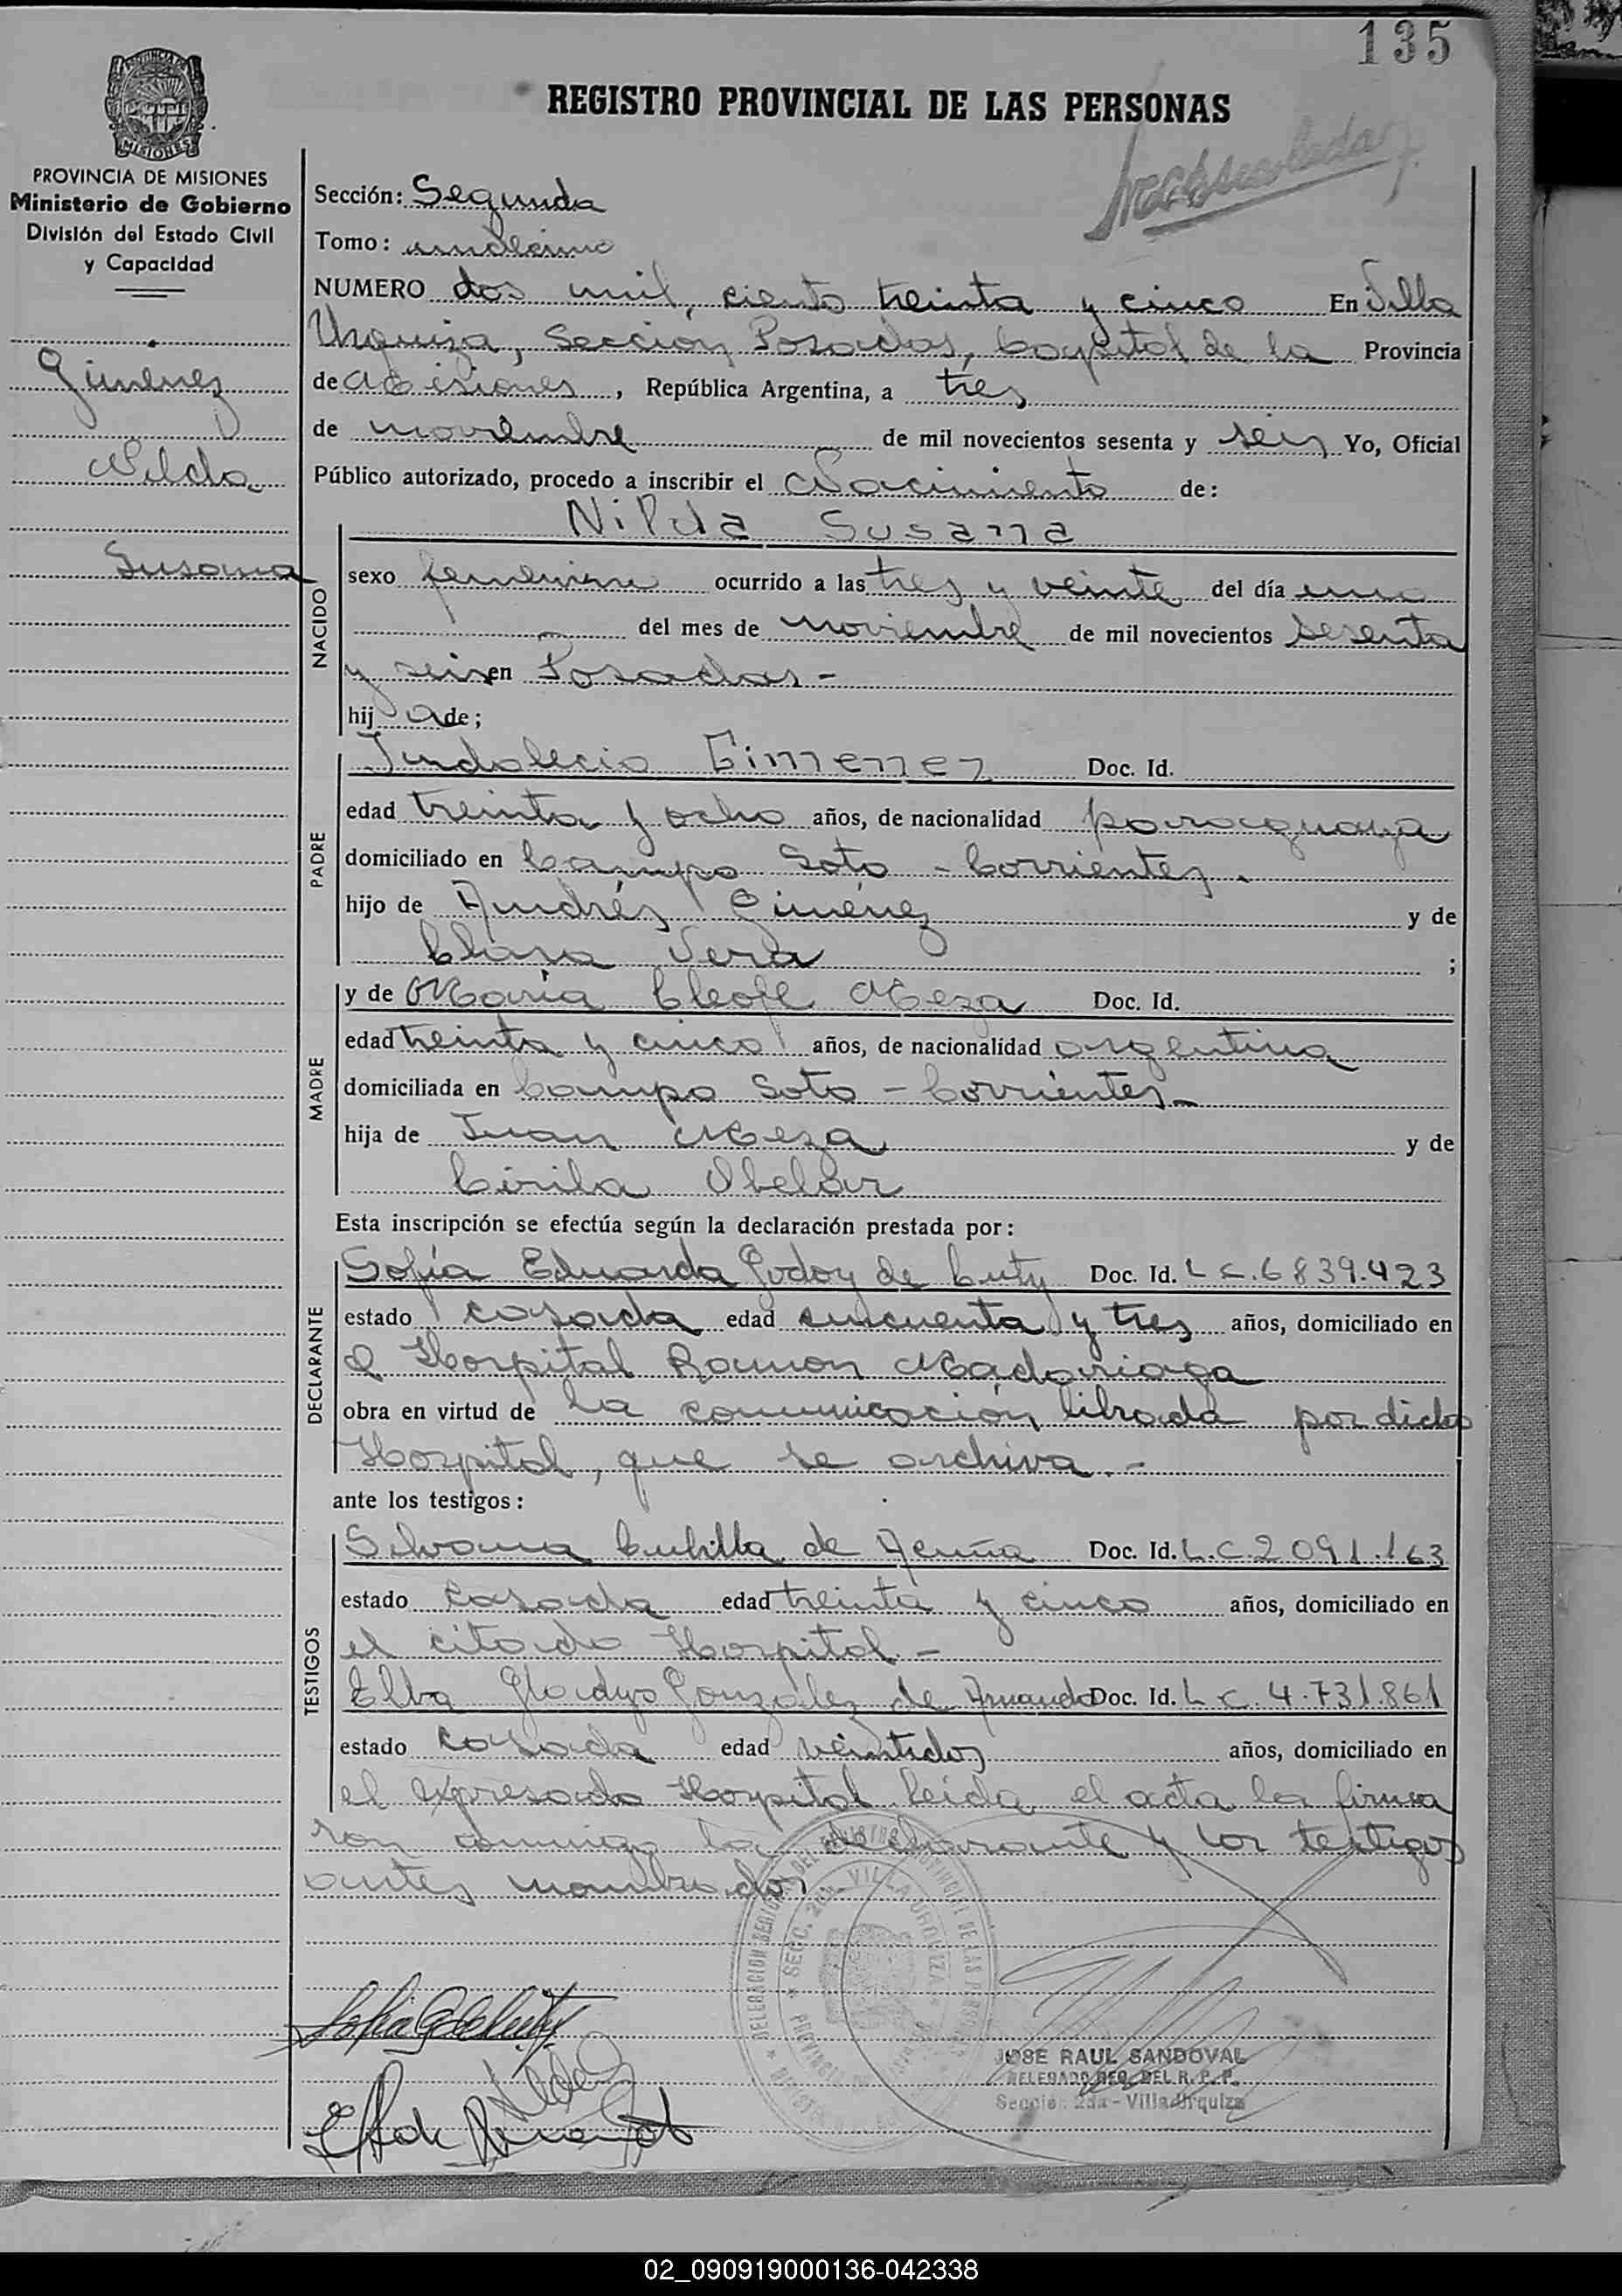 135
REGISTRO PROVINCIAL DE LAS PERSONAS
PROVINCIA DE MISIONES
Ministerio de Gobierno
División del Estado Civil
y Capacidad
Gimenez
Nilda
Susana
Sección: Segunda
Tomo: undécimo
NUMERO dos mil, ciento treinta y cinco En Villa
Urquiza, Sección Posadas, Capital de la Provincia
de Misiones, República Argentina, a tres
de noviembre de mil novecientos sesenta y seis Yo, Oficial
Público autorizado, procedo a inscribir el Nacimiento de:
Nilda Susana
NACIDO
sexo femenino ocurrido a las tres y veinte del día uno
del mes de noviembre de mil novecientos sesenta
y seis en Posadas-
hij a de;
PADRE
Indalecio Gimenez Doc. Id.
edad treinta y ocho años, de nacionalidad paraguaya
domiciliado en Campo Soto - Corrientes.
hijo de Andrés Giménez y de
Clara Vera ;
MADRE
y de María Cleofe Meza Doc. Id.
edad treinta y cinco años, de nacionalidad argentina
domiciliada en Campo Soto - Corrientes-
hija de Juan Meza y de
Cirila Obelar
Esta inscripción se efectúa según la declaración prestada por:
DECLARANTE
Sofía Eduarda Godoy de Cuty Doc. Id. L C. 6839.423
estado casada edad cincuenta y tres años, domiciliado en
el Hospital Ramon Madariaga
obra en virtud de la comunicación librada por dicho
Hospital, que se archiva.-
ante los testigos:
TESTIGOS
Silvana Cubilla de Acuña Doc. Id. L.C. 2091.163
estado casada edad treinta y cinco años, domiciliado en
el citado Hospital -
Elba Gladys González de Doc. Id. L C. 4.731.861
estado casada edad veintidos años, domiciliado en
el expresado Hospital leida el acta la firma
ron conmigo la declarante y los testigos
antes nombrados
SECC. 2da. VILLA URQUIZA
JOSE RAUL SANDOVAL
DELEGADO REG. DEL R. P. P.
Sección 2da - Villa Urquiza
02_090919000136-042338